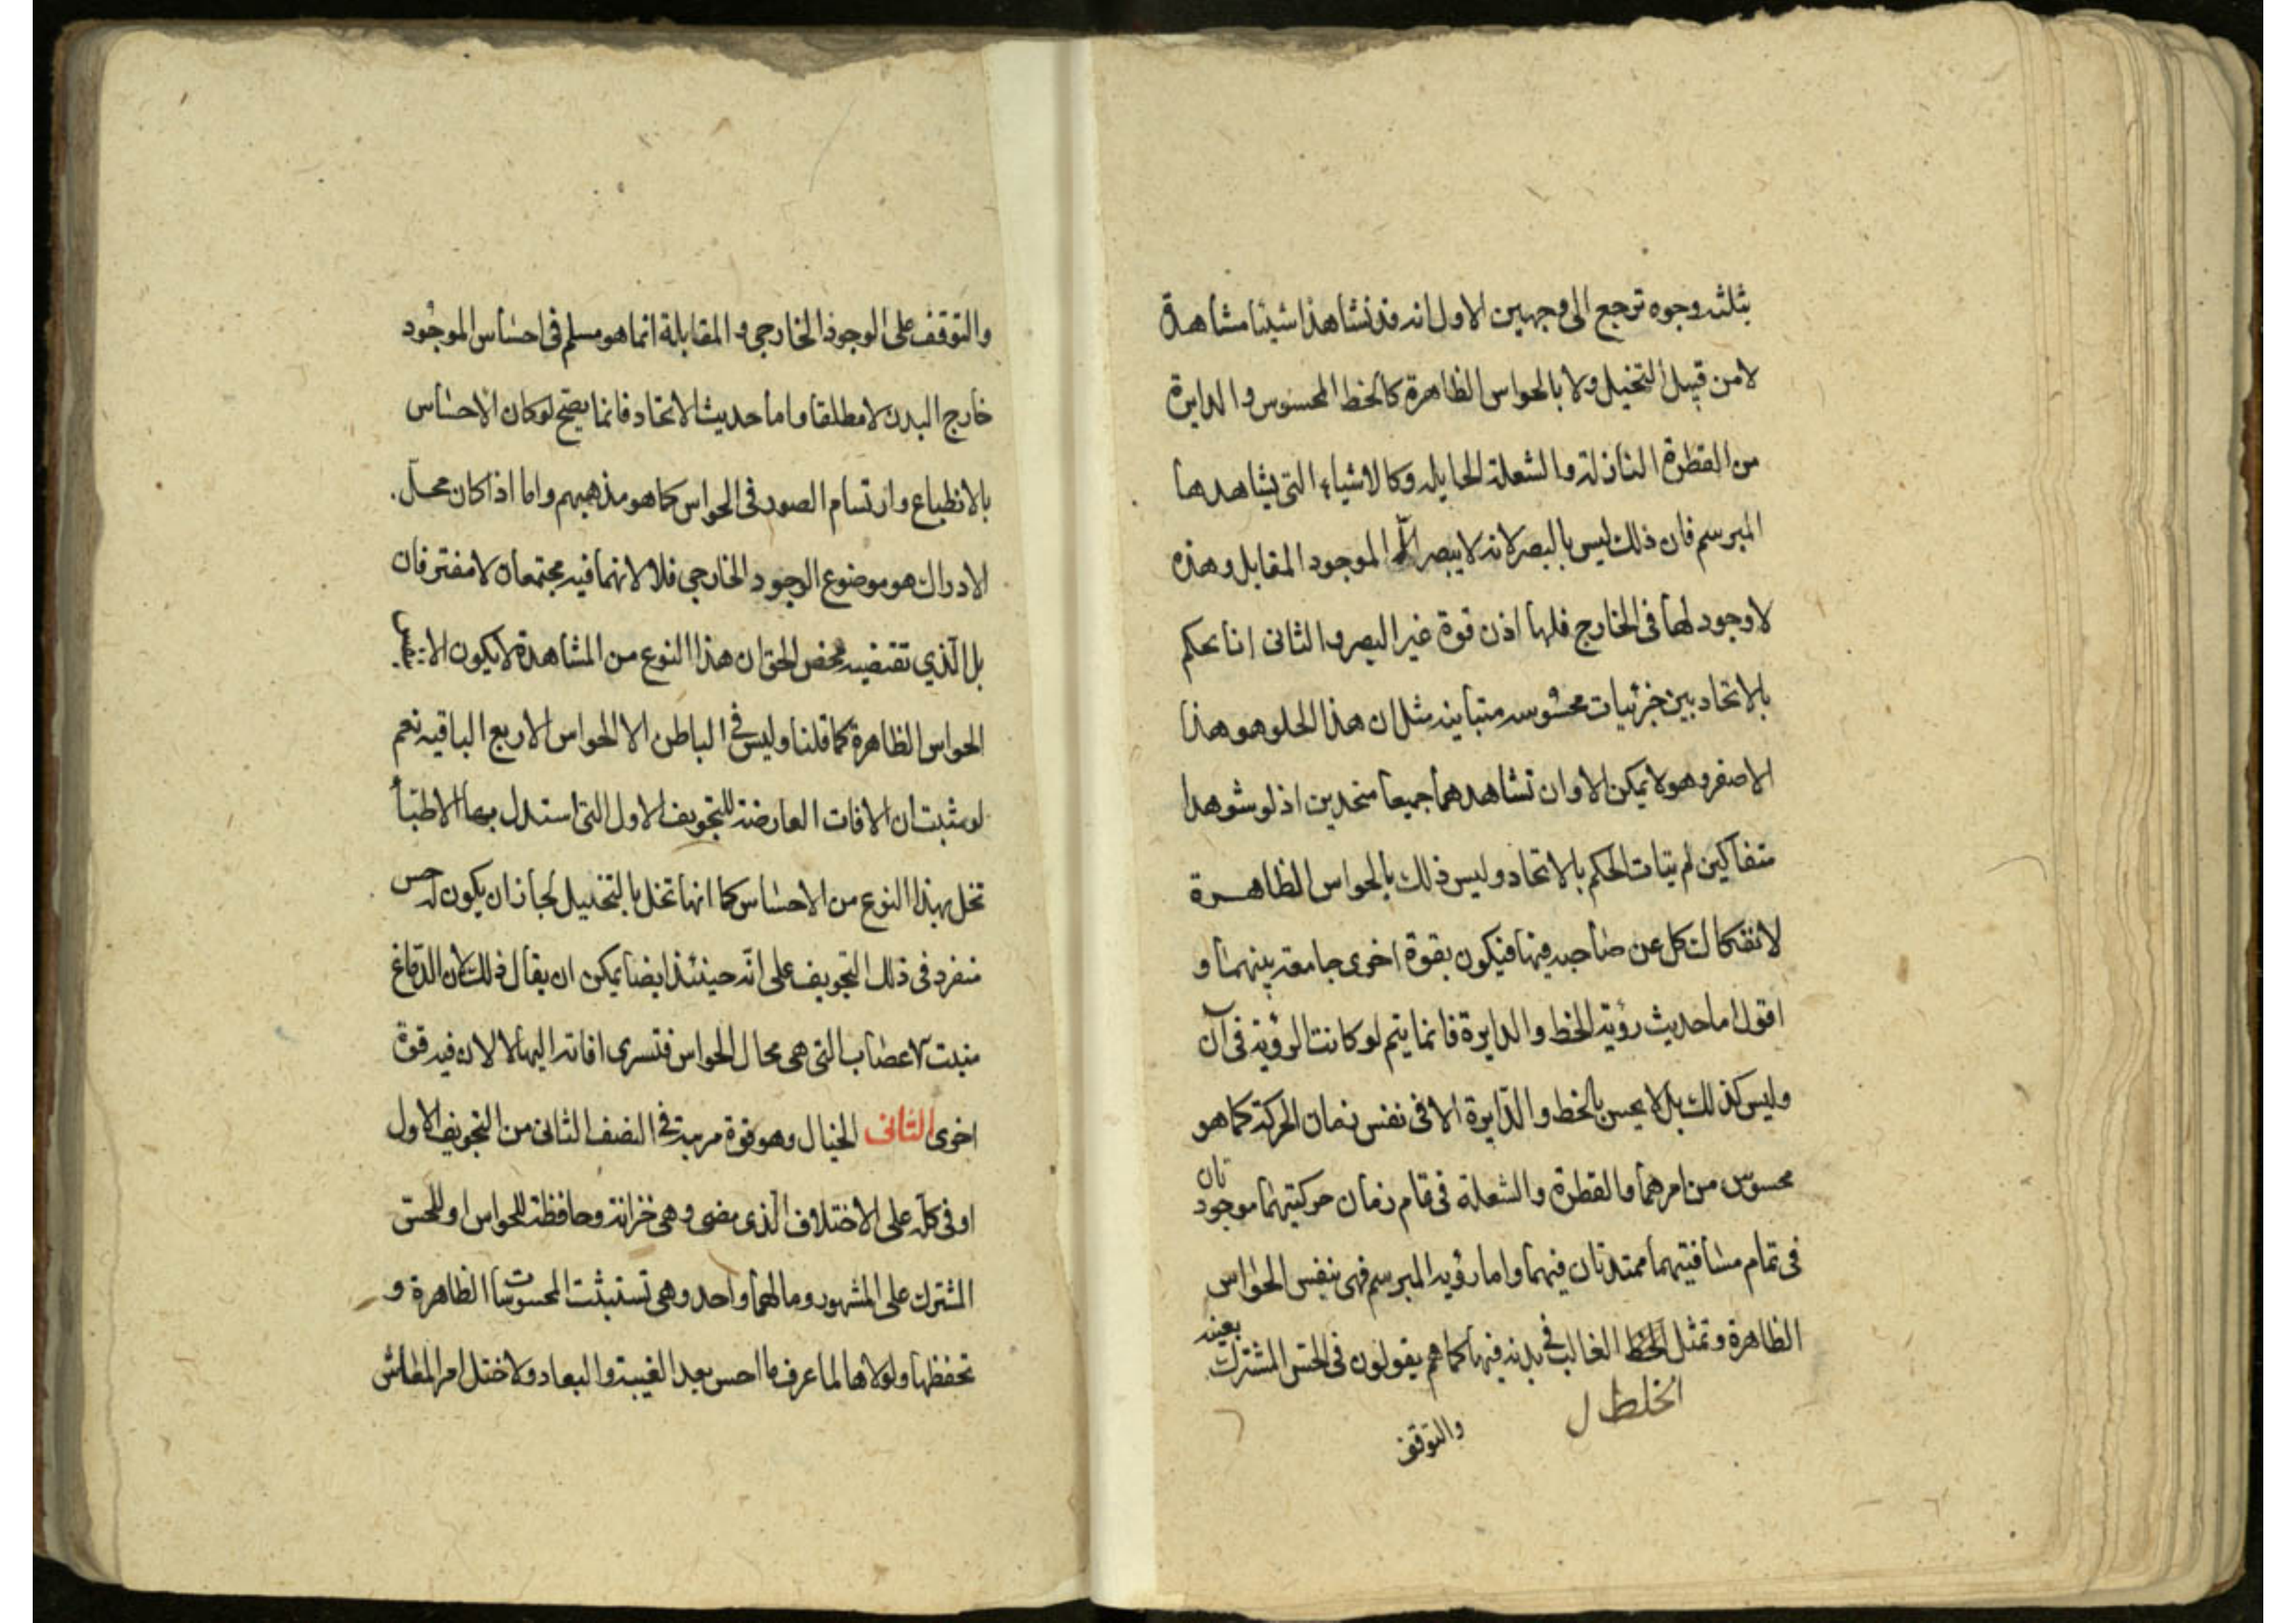 بثلثه وجوه ترجع الى وجهين الاول انه قد نشاهد اشيئا مشاهدة
لا من قبيل التخيل ولا بالحواس الظاهرة كالخط المحسوس والدايرة
من القطرة النازلة والشعلة الجايله وكالاشياء التى يشاهدها
المبرسم فان ذلك ليس بالبصر لانه لا يبصر الا الموجود المقابل وهذه
لا وجود لها فى الخارج فلها اذن قوة غير البصر والثانى انا نحكم
بالاتحاد بين جزئيات محسوسه متباينه مثل ان هذا الحلو هو هذا
الاصفر وهو لا يمكن الا وان تشاهدهما جميعا متحدين اذ لو شوهدا
متفاكين لم يتات الحكم بالاتحاد وليس ذلك بالحواس الظاهرة
لانفكاك كل عن صاحبه فيها فيكون بقوة اخرى جامعة بينهما و
اقول اما حديث رؤية الخط والدايرة فانما يتم لو كانت الرؤية فى آن
وليس كذلك بل لا يحس بالخط والدايرة الا فى نفس زمان الحركة كما هو
محسوس من امرهما والقطرة والشعلة فى تمام زمان حركتيهما موجودتان
فى تمام مسافتيهما ممتدتان فيهما واما رؤية المبرسم فهى بنفس الحواس
الظاهرة وتمثل الخط الغالب فى بدنه فيها كما هم يقولون فى الحس المشترك بعينه
الخلط ل
والتوقف
والتوقف على الوجود الخارجي والمقابلة انما هو مسلم فى احساس الموجود
خارج البدن لا مطلقا واما حديث الاتحاد فانما يصح لو كان الاحساس
بالانطباع وارتسام الصور فى الحواس كما هو مذهبهم واما اذا كان محل
الادراك هو موضوع الوجود الخارجي فلا لانهما فيه مجتمعان لا مفترقان
بل الذي تقتضيه محض الحق ان هذا النوع من المشاهدة لا يكون الا
الحواس الظاهرة كما قلنا وليس فى الباطن الا الحواس الاربع الباقيه نعم
لو ثبت ان الافات العارضة للتجويف الاول التى استدل بها الاطبا
تخل بهذا النوع من الاحساس كما انها تخل بالتخييل لجاز ان يكون له حس
منفرد فى ذلك التجويف على انه حينئذ ايضا يمكن ان يقال ذلك لان الدماغ
منبت الاعصاب التى هى محال الحواس فتسرى افاته اليها لا لان فيه قوة
اخرى الثانى الخيال وهو قوة مرتبة فى النصف الثانى من التجويف الاول
او فى كله على الاختلاف الذى مضى وهى خزانة وحافظة للحواس او للحس
المشترك على المشهور ومالهما واحد وهى تستثبت المحسوسات الظاهرة و
تحفظها ولولاها لما عرف ما احس بعد الغيبة والبعاد ولاختل امر المعاش